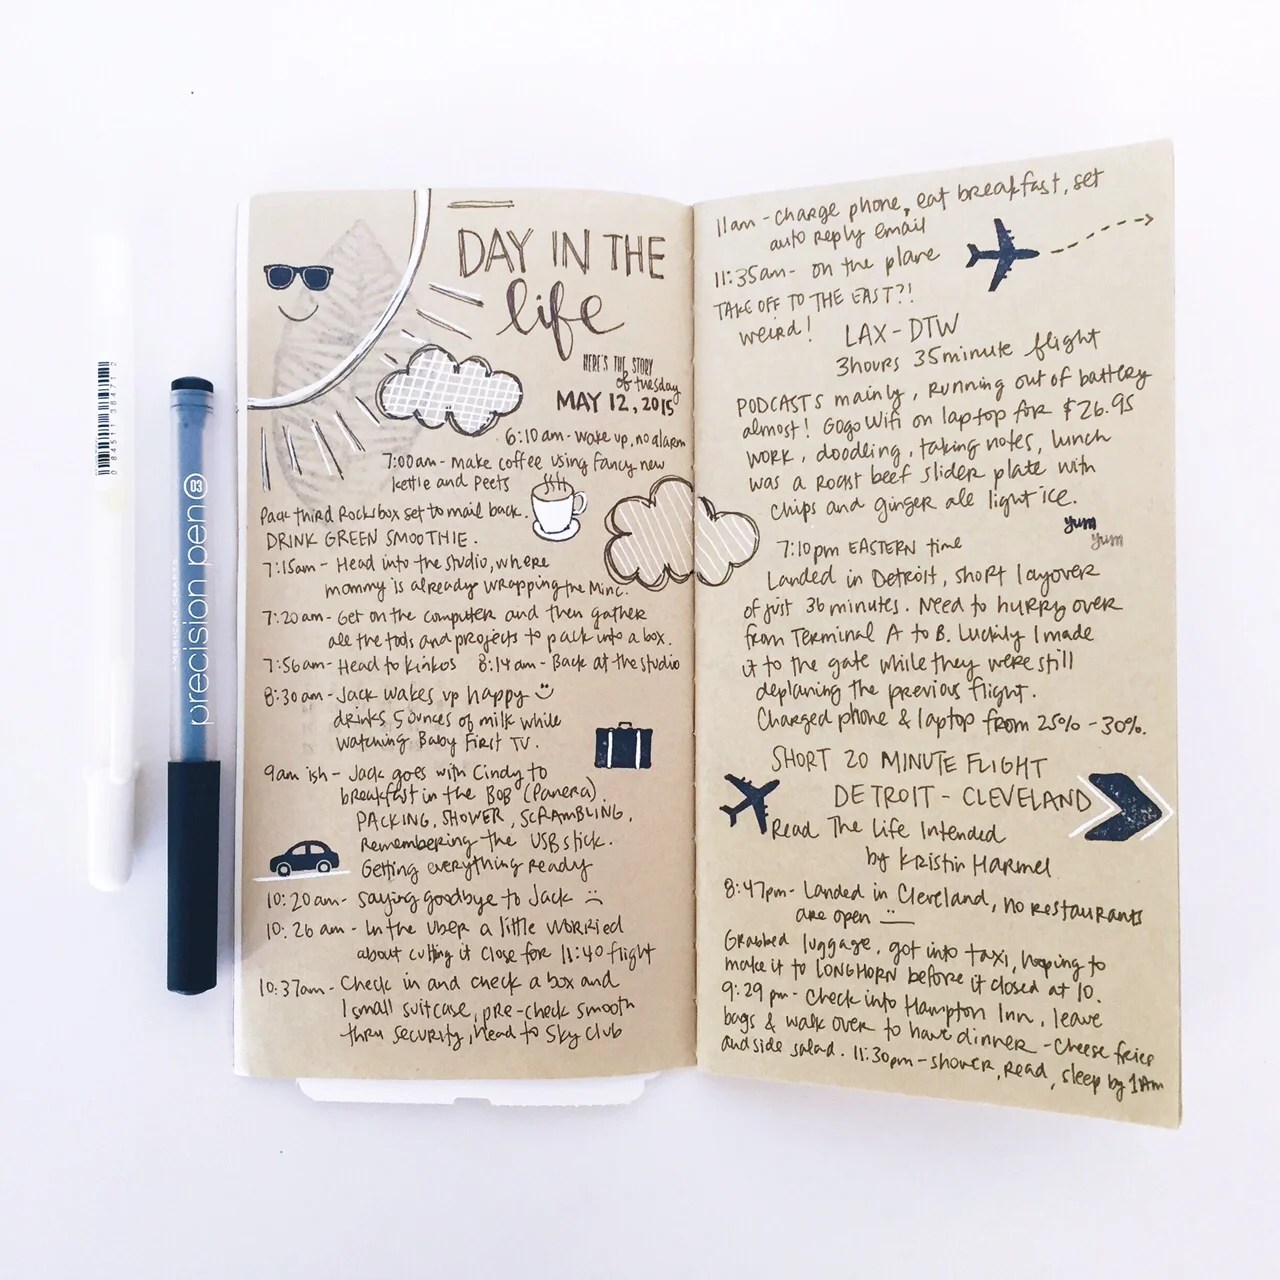 DAY IN THE
life
HERE'S THE STORY
of tuesday
MAY 12, 2015
6:10am - wake up, no alarm
7:00am - make coffee using fancy new
kettle and peets
Pack third Rocksbox set to mail back.
DRINK GREEN SMOOTHIE.
7:15am - Head into the studio, where
mommy is already wrapping the Minc.
7:20am - Get on the computer and then gather
all the tools and projects to pack into a box.
7:56am - Head to Kinkos 8:14am - Back at the studio
8:30am - Jack wakes up happy
drinks 5 ounces of milk while
watching Baby First TV.
9am ish - Jack goes with Cindy to
breakfast in the BOB (Panera).
PACKING, SHOWER, SCRAMBLING,
Remembering the USB stick.
Getting everything ready
10:20am - saying goodbye to Jack
10:26am - In the Uber a little worried
about cutting it close for 11:40 flight
10:37am - Check in and check a box and
1 small suitcase, pre-check smooth
thru security, head to Sky Club
11am - charge phone, eat breakfast, set
auto reply email
11:35am - on the plane
TAKE OFF TO THE EAST?!
weird!
LAX - DTW
3hours 35minute flight
PODCASTS mainly, running out of battery
almost! Gogo Wifi on laptop for $26.95
WORK, doodling, taking notes, lunch
was a roast beef slider plate with
chips and ginger ale light ice.
yum
yum
7:10pm EASTERN time
Landed in Detroit, short layover
of just 36 minutes. Need to hurry over
from Terminal A to B. Luckily I made
it to the gate while they were still
deplaning the previous flight.
Charged phone & laptop from 25% - 30%.
SHORT 20 MINUTE FLIGHT
DETROIT - CLEVELAND
Read The Life Intended
by Kristin Harmel
8:47pm - Landed in Cleveland, no restaurants
are open
Grabbed luggage, got into taxi, hoping to
make it to LONGHORN before it closed at 10.
9:29pm - Check into Hampton Inn, leave
bags & walk over to have dinner - cheese fries
and side salad. 11:30pm - shower, read, sleep by 1am
AMERICAN CRAFTS
precision pen 03
0 84511 38471 2